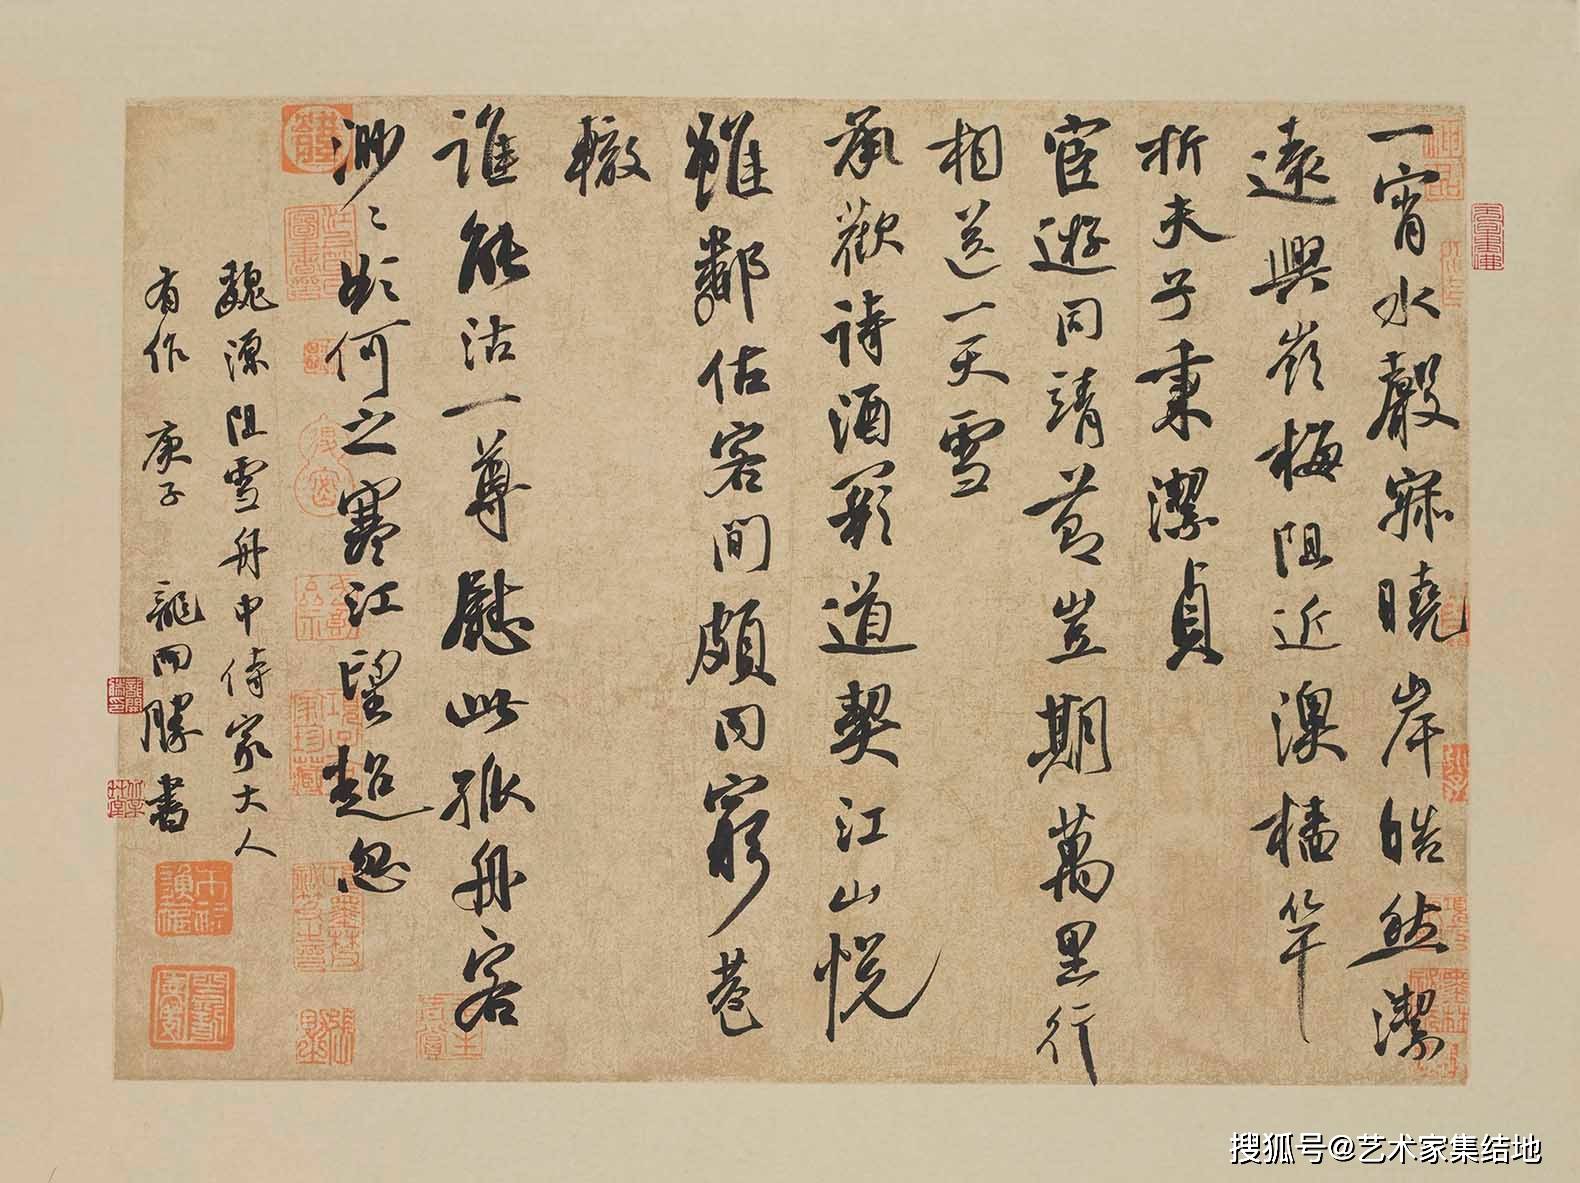 一宵水聲寐曉岸皓然潔
遠興嶺梅阻近澳橘竿
折夫子秉潔貞
宦遊同靖節豈期萬里行
相送一天雪
承歡詩酒影道契江山悅
雖鄰估客間頗同窮巷
轍
誰能沽一尊慰此孤舟客
渺渺欲何之寒江望超忽
魏源阻雪舟中侍家大人
有作 庚子 龍開勝書
搜狐号@艺术家集结地